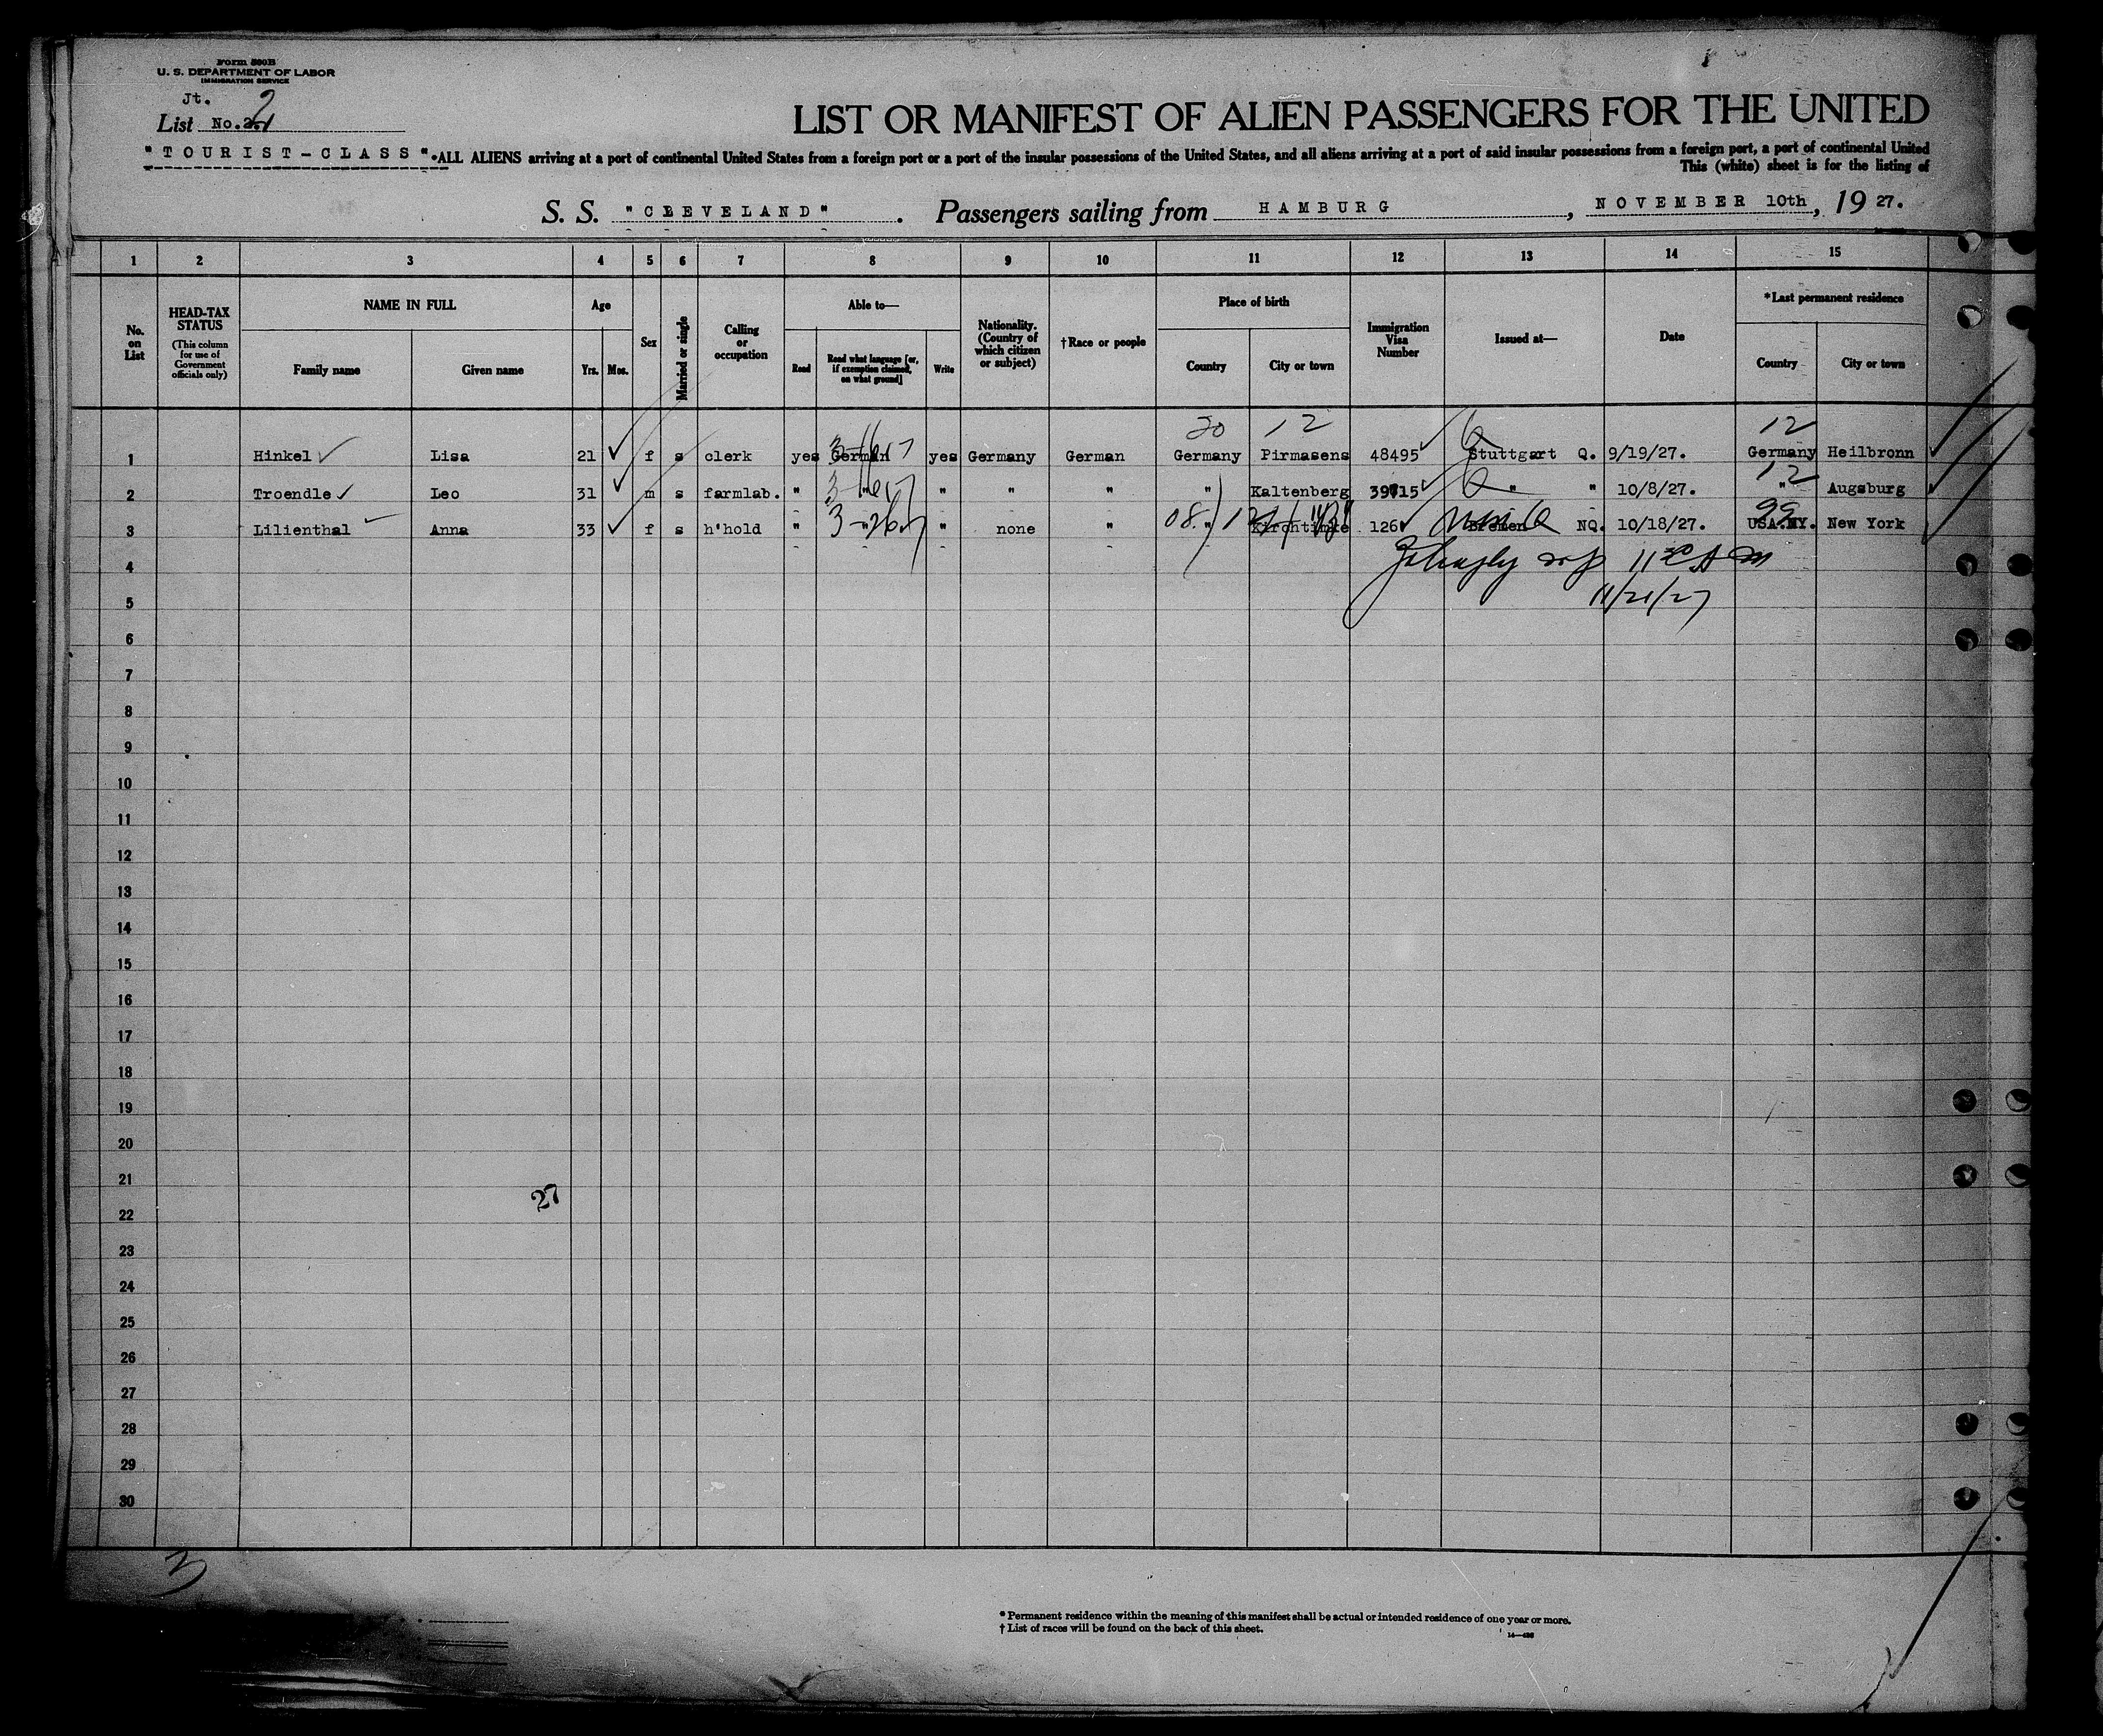 Form 500B
U. S. DEPARTMENT OF LABOR
IMMIGRATION SERVICE
Jt. 2
List No.
LIST OR MANIFEST OF ALIEN PASSENGERS FOR THE UNITED
"TOURIST-CLASS". ALL ALIENS arriving at a port of continental United States from a foreign port or a port of the insular possessions of the United States, and all aliens arriving at a port of said insular possessions from a foreign port, a port of continental United
This (white) sheet is for the listing of
S. S. "CLEVELAND". Passengers sailing from HAMBURG, NOVEMBER 10th, 19 27.
1 2 3 4 5 6 7 8 9 10 11 12 13 14 15
No. on List
HEAD-TAX STATUS (This column for use of Government officials only)
NAME IN FULL
Family name Given name
Age
Yrs. Mos.
Sex
Married or single
Calling or occupation
Able to—
Read Read what language [or, if exemption claimed, on what ground] Write
Nationality. (Country of which citizen or subject)
†Race or people
Place of birth
Country City or town
Immigration Visa Number
Issued at—
Date
*Last permanent residence
Country City or town
20 12 12
1 Hinkel Lisa 21 f s clerk yes German yes Germany German Germany Pirmasens 48495 Stuttgart Q. 9/19/27. Germany Heilbronn
12
2 Troendle Leo 31 m s farmlab. " " " " " " Kaltenberg 39715 " " 10/8/27. " Augsburg
99
3 Lilienthal Anna 33 f s h'hold " " " none " " Kirchtimke 126 Bremen NQ. 10/18/27. USA.NY. New York
4 11 30 A M
5 11/21/27
6
7
8
9
10
11
12
13
14
15
16
17
18
19
20
21
27
22
23
24
25
26
27
28
29
30
3
* Permanent residence within the meaning of this manifest shall be actual or intended residence of one year or more.
† List of races will be found on the back of this sheet.